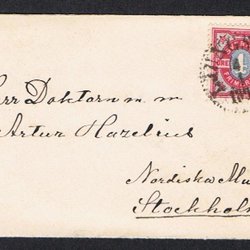 Herr Doktorn m. m.
Artur Hazelius
Nordiska Mu
Stockholm